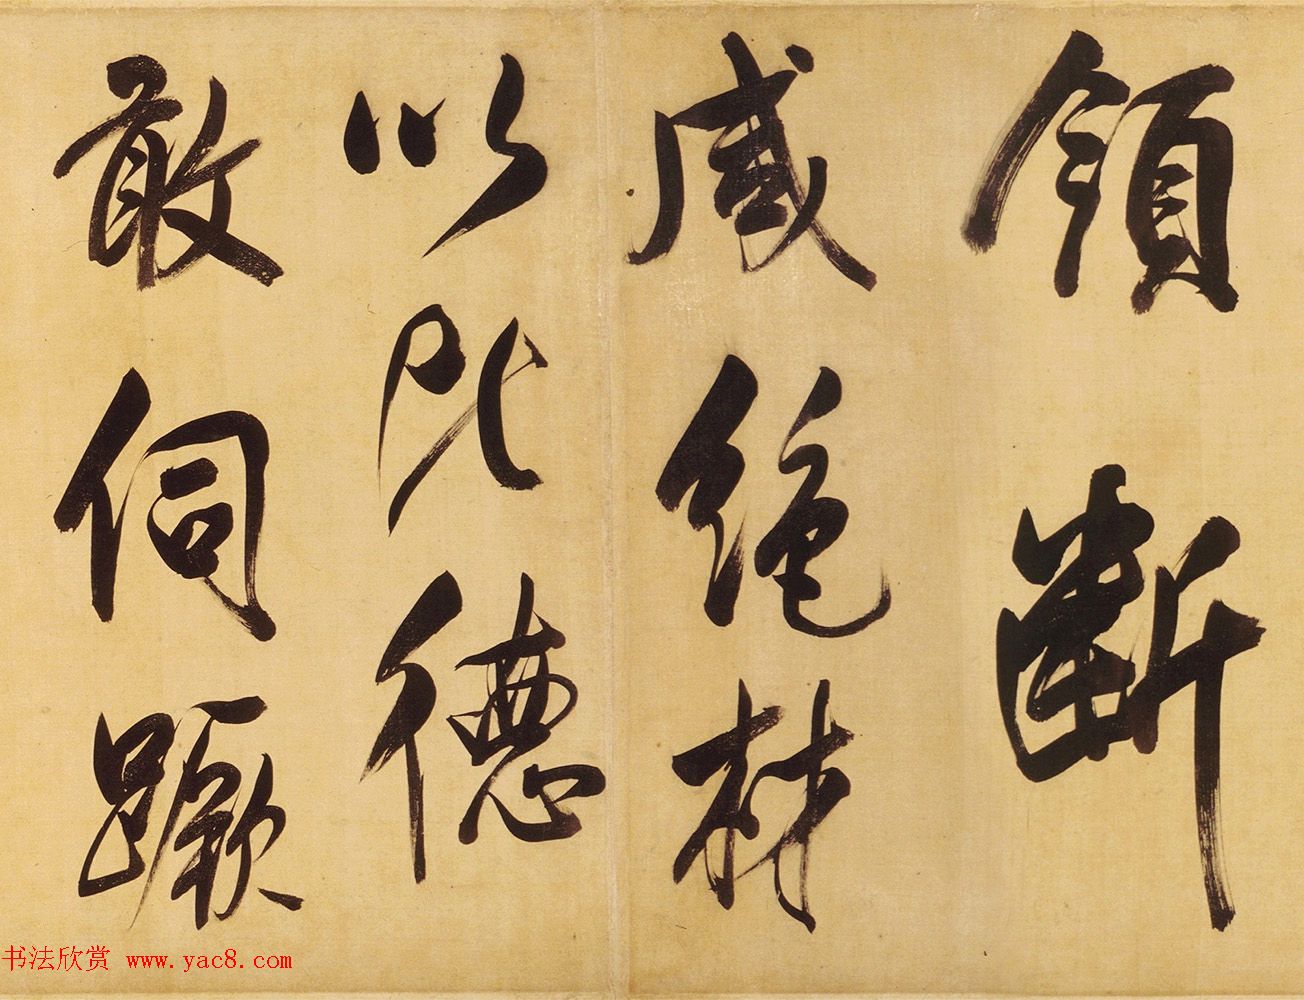 領斷
咸絶材
以此德
敢伺蹶
书法欣赏 www.yac8.com